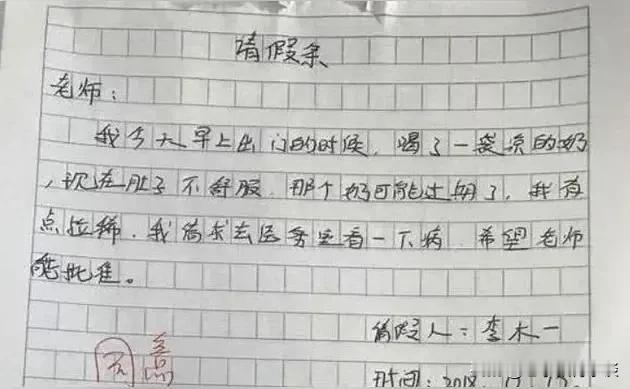 请假条
老师：
我今天早上出门的时候，喝了一袋凉的奶
，现在肚子不舒服，那个奶可能过期了，我有
点拉稀，我请求去医务室看一下病，希望老师
能批准。
请假人：李木一
时间：2018